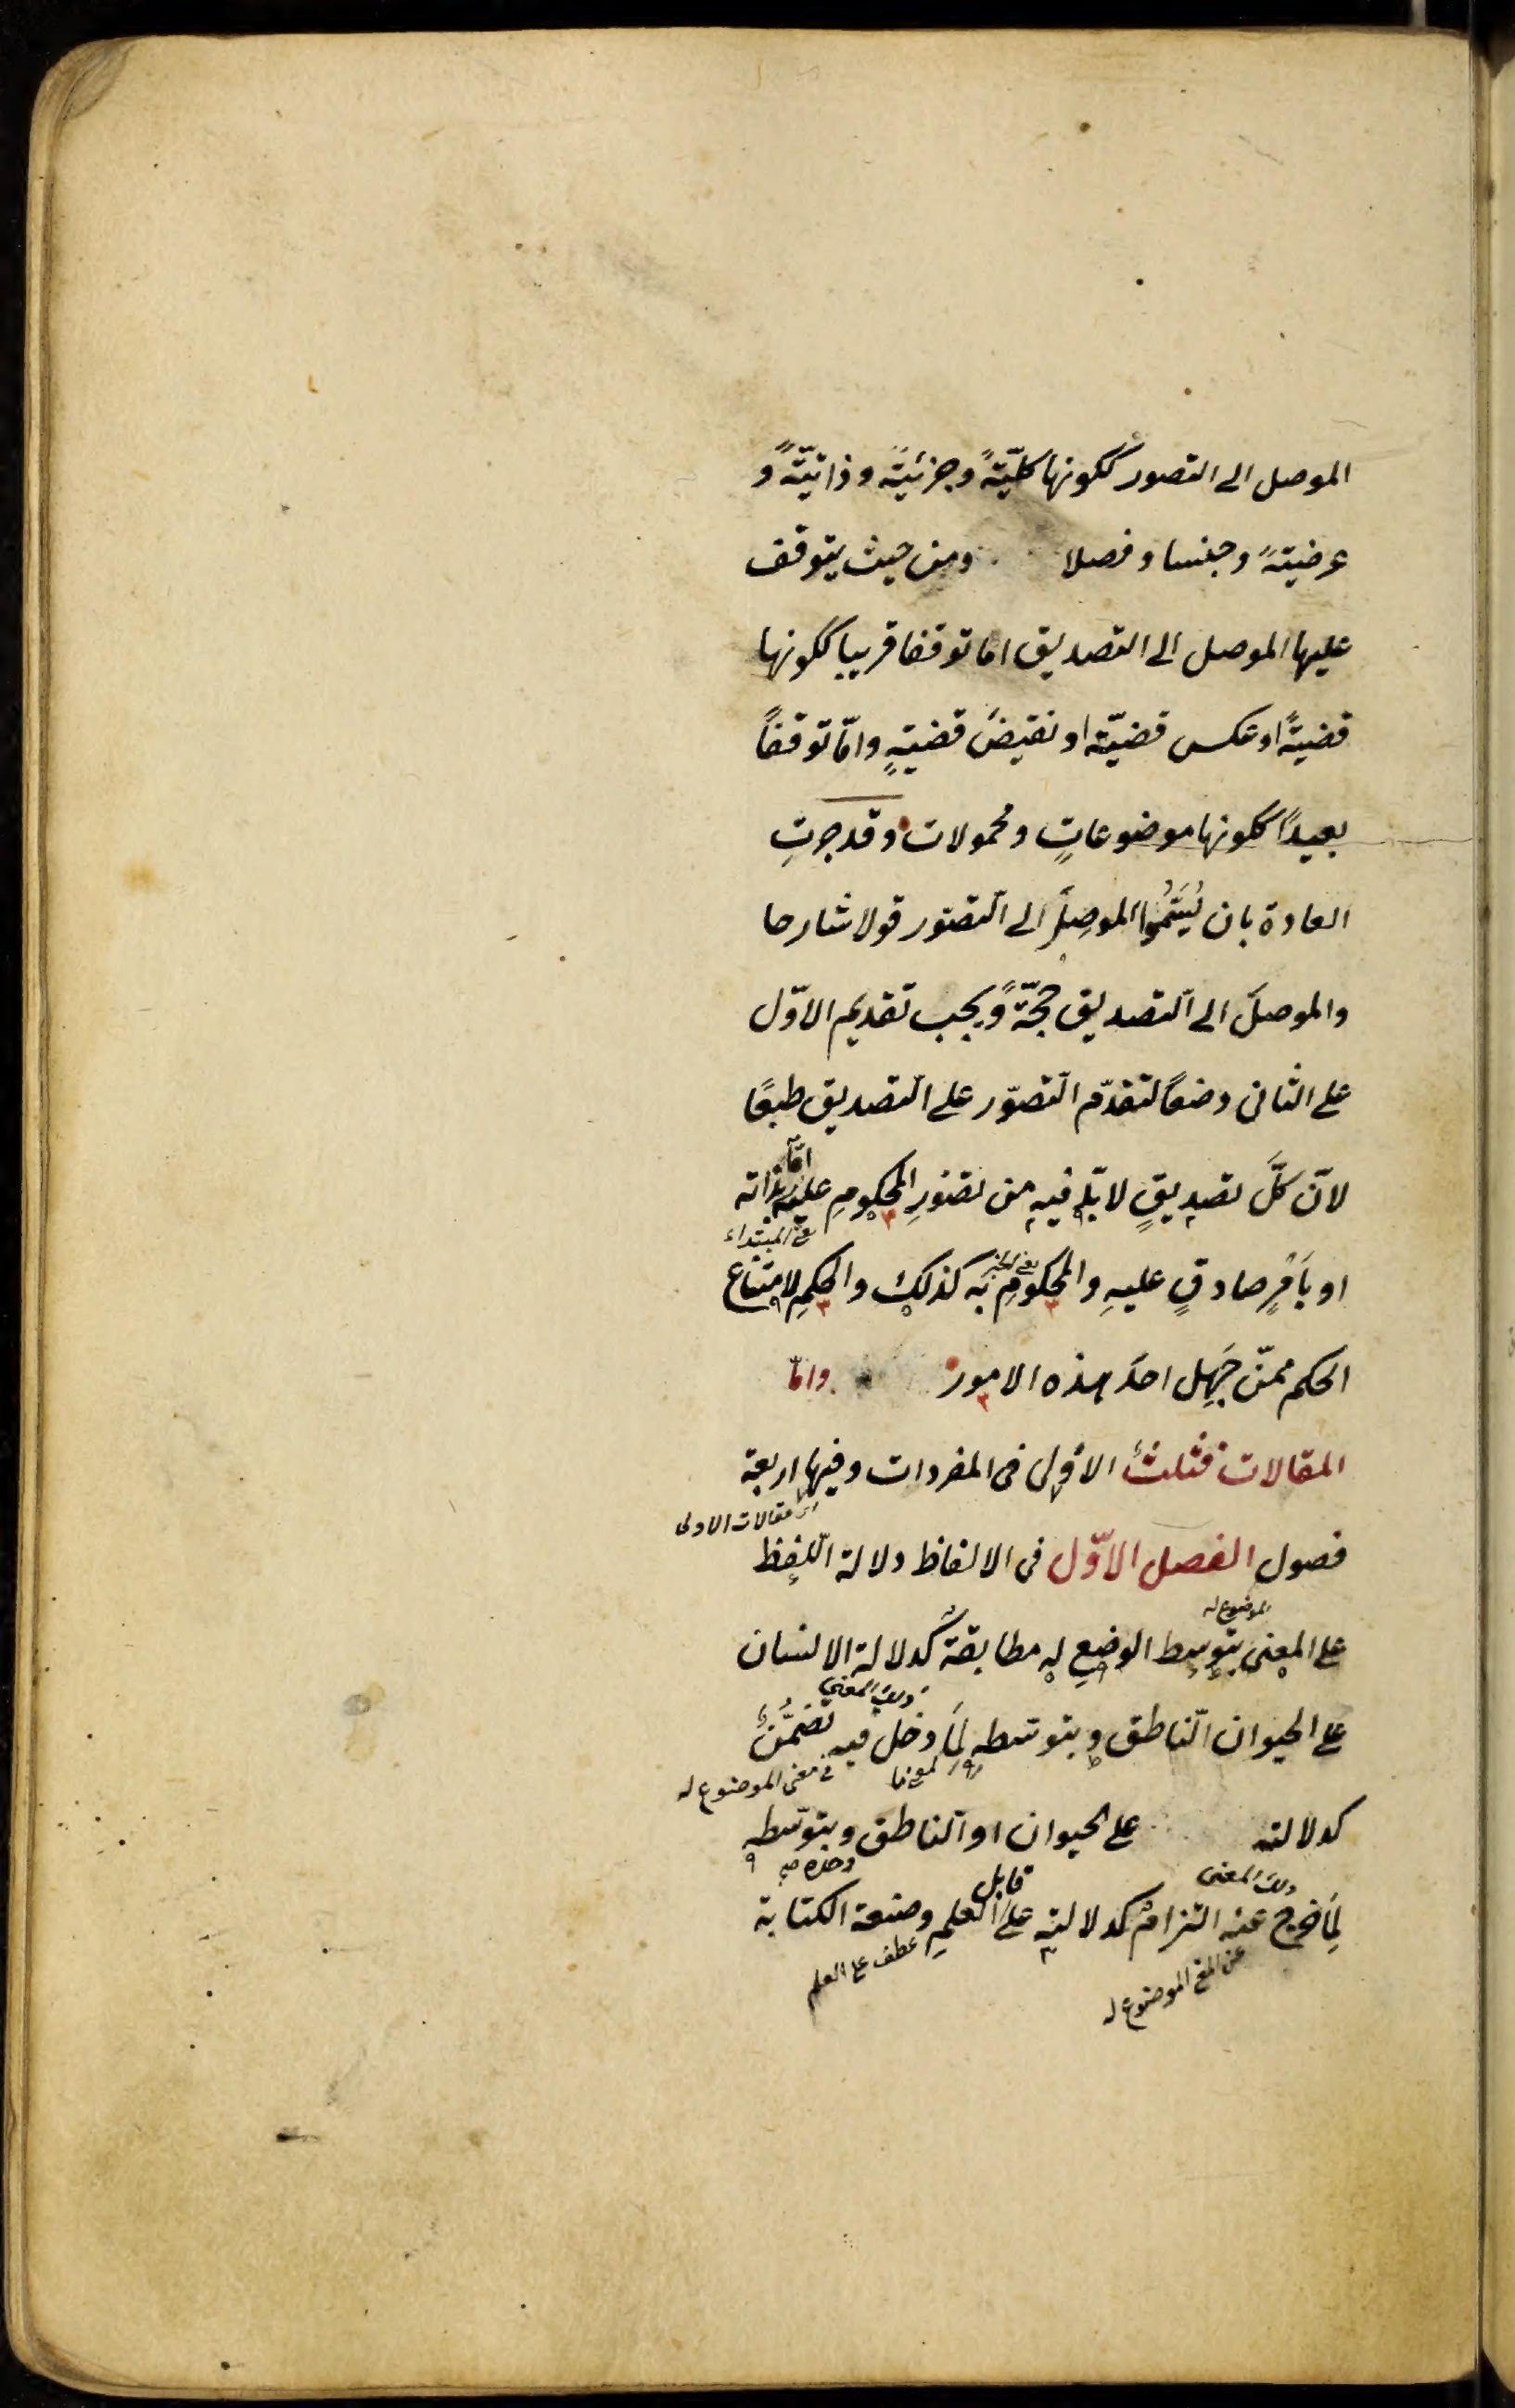 الموصل الى التصور ككونها كليّةً وجزئيةً وذاتيّةً و
عرضيةً وجنسا وفصلا ومن حيث يتوقف
عليها الموصل الى التصديق اما توقفا قريبا ككونها
قضيةً او عكس قضيّة او نقيضَ قضيةٍ وامّا توقفاً
بعيداً ككونها موضوعاتٍ ومحمولات وقد جرتِ
العادة بان يُسَمُّوا الموصِلَ الى التصوّر قولا شارحا
والموصلَ الى التصديق حجّةً ويجب تقديم الاوّل
على الثانى وضعاً لتقدّم التصوّر على التصديق طبعًا
لانّ كلَّ تصديقٍ لا بدّ فيه من تصوّرِ المحكومِ عليه امّا بذاته
على المبتداء
او بأمرٍ صادقٍ عليهِ والمحكومِ به كذلك والحكمِ لامتناع
الحكم ممّن جَهِل احدَ هذه الامور وامّا
المقالات فثلثٌ الاولى فى المفردات وفيها اربعة
مقالات الاولى
فصول الفصل الاوّل فى الالفاظ دلالة اللّفظ
الموضوع له
على المعنى بتوسط الوضعِ له مطابقةٌ كدلالة الانسان
ذلك المعنى
على الحيوان النّاطق وبتوسّطه لِمَا دخل فيه تضمُّنٌ
فى معنى الموضوع له
كدلالته على الحيوان او النّاطق وبتوسّطه
ذلك المعنى
لِمَا خرج عنه التزامٌ كدلالته على قابل العلمِ وصنعة الكتابة
عطف على العلم
عن المعنى الموضوع له